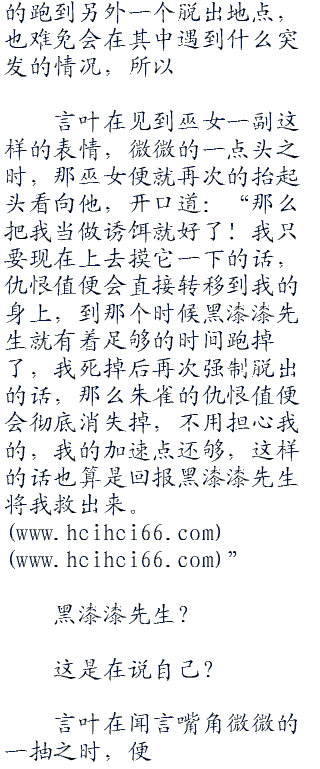 的跑到另外一个脱出地点，
也难免会在其中遇到什么突
发的情况，所以
言叶在见到巫女一副这
样的表情，微微的一点头之
时，那巫女便就再次的抬起
头看向他，开口道：“那么
把我当做诱饵就好了！我只
要现在上去摸它一下的话，
仇恨值便会直接转移到我的
身上，到那个时候黑漆漆先
生就有着足够的时间跑掉
了，我死掉后再次强制脱出
的话，那么朱雀的仇恨值便
会彻底消失掉，不用担心我
的，我的加速点还够，这样
的话也算是回报黑漆漆先生
将我救出来。
(www.hcihci66.com)
(www.hcihci66.com)”
黑漆漆先生？
这是在说自己？
言叶在闻言嘴角微微的
一抽之时，便